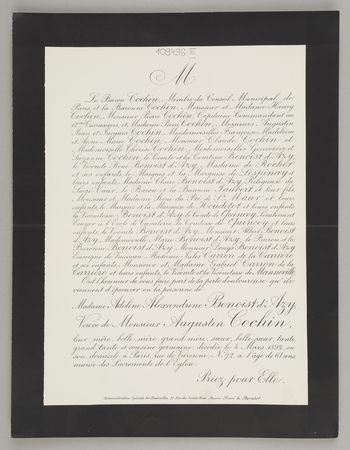 109496 E
M
Le Baron Cochin, Membre du Conseil Municipal de
Paris, et la Baronne Cochin, Monsieur et Madame Henry
Cochin, Monsieur Jean Cochin, Capitaine Commandant au
Cuirassiers, et Madame Jean Cochin, Messieurs Augustin,
Jean et Jacques Cochin, Mesdemoiselles Françoise, Madeleine
et Anne Marie Cochin, Monsieur Claude Cochin et
Mademoiselle Thérèse Cochin, Mesdemoiselles Geneviève et
Suzanne Cochin, le Comte et la Comtesse Benoist d'Azy,
le Vicomte Benoist d'Azy, Madame de Rocher
et ses enfants, le Marquis et la Marquise de Lespinay et
leurs enfants, Madame Claire Benoist d'Azy, Religieuse du
Sacré Cœur, le Baron et la Baronne Jaubert et leur fils
Monsieur et Madame René du Pré de St Maur et leurs
enfants, le Marquis et la Marquise de et leurs enfants
la Vicomtesse Benoist d'Azy, le Comte de Quincey, Lieutenant
et leurs
enfants, le Vicomte Benoist d'Azy, Monsieur Albert Benoist
d'Azy, Mademoiselle Marie Benoist d'Azy, le Baron et la
Baronne Benoist d'Azy, Monsieur Denys Benoist d'Azy
Enseigne de Vaisseau, Madame Jules Carron de la Carrière
et ses enfants, Monsieur et Madame Gabriel Carron de la
Carrière et leurs enfants, le Vicomte et la Vicomtesse de
Ont l'honneur de vous faire part de la perte douloureuse qu'ils
viennent d'éprouver en la personne de
Madame Adeline Alexandrine Benoist d'Azy,
Veuve de Monsieur Augustin Cochin,
leur mère, belle-mère, grand'mère, sœur, belle-sœur, tante,
grand'tante et cousine germaine, décédée le 4 Mars 1892, en
son domicile à Paris, rue de Varenne, N° 72, à l'âge de 61 ans,
munie des Sacrements de l'Eglise.
Priez pour Elle.